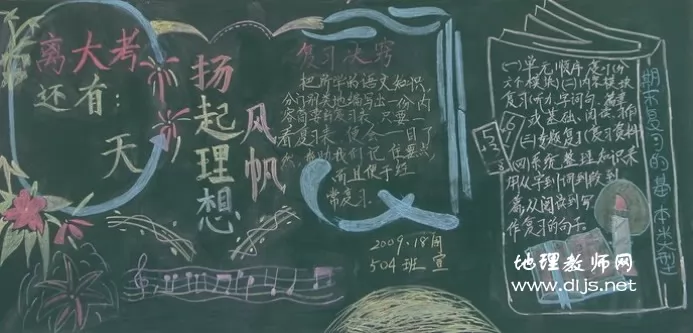 离大考
还有：
天
扬起理想
风帆
复习决窍
把所学的语文知识,
分门别类地编写出一份内
容简要的复习表,只要一
看复习表,便会一目了
然,帮助我们记住要点,
而且便于经
常复习.
2009.18周
504班 宣
(一)单元顺序复习(份
六个模块)(二)内容模块
复习(听力、字词句、篇章
或基础、阅读、
(三)专题复习(复习资料
(四)系统整理知识采
用从字到词到段到
篇,从阅读到写
作复习的句子。
期末复习的基本类型
地理教师网
www.dljs.net